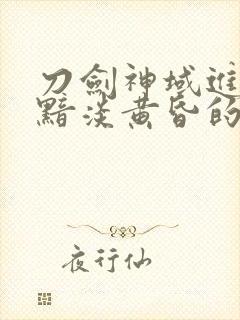 刀劍神域進
黯淡黃昏的
夜行仙